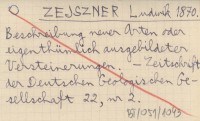 ZEJSZNER Ludwik 1870.
Beschreibung neuer Arten oder
eigenthümlich ausgebildeter
Versteinerungen. — Zeitschrift
der Deutschen Geologischen Ge-
sellschaft 22, nr 2.